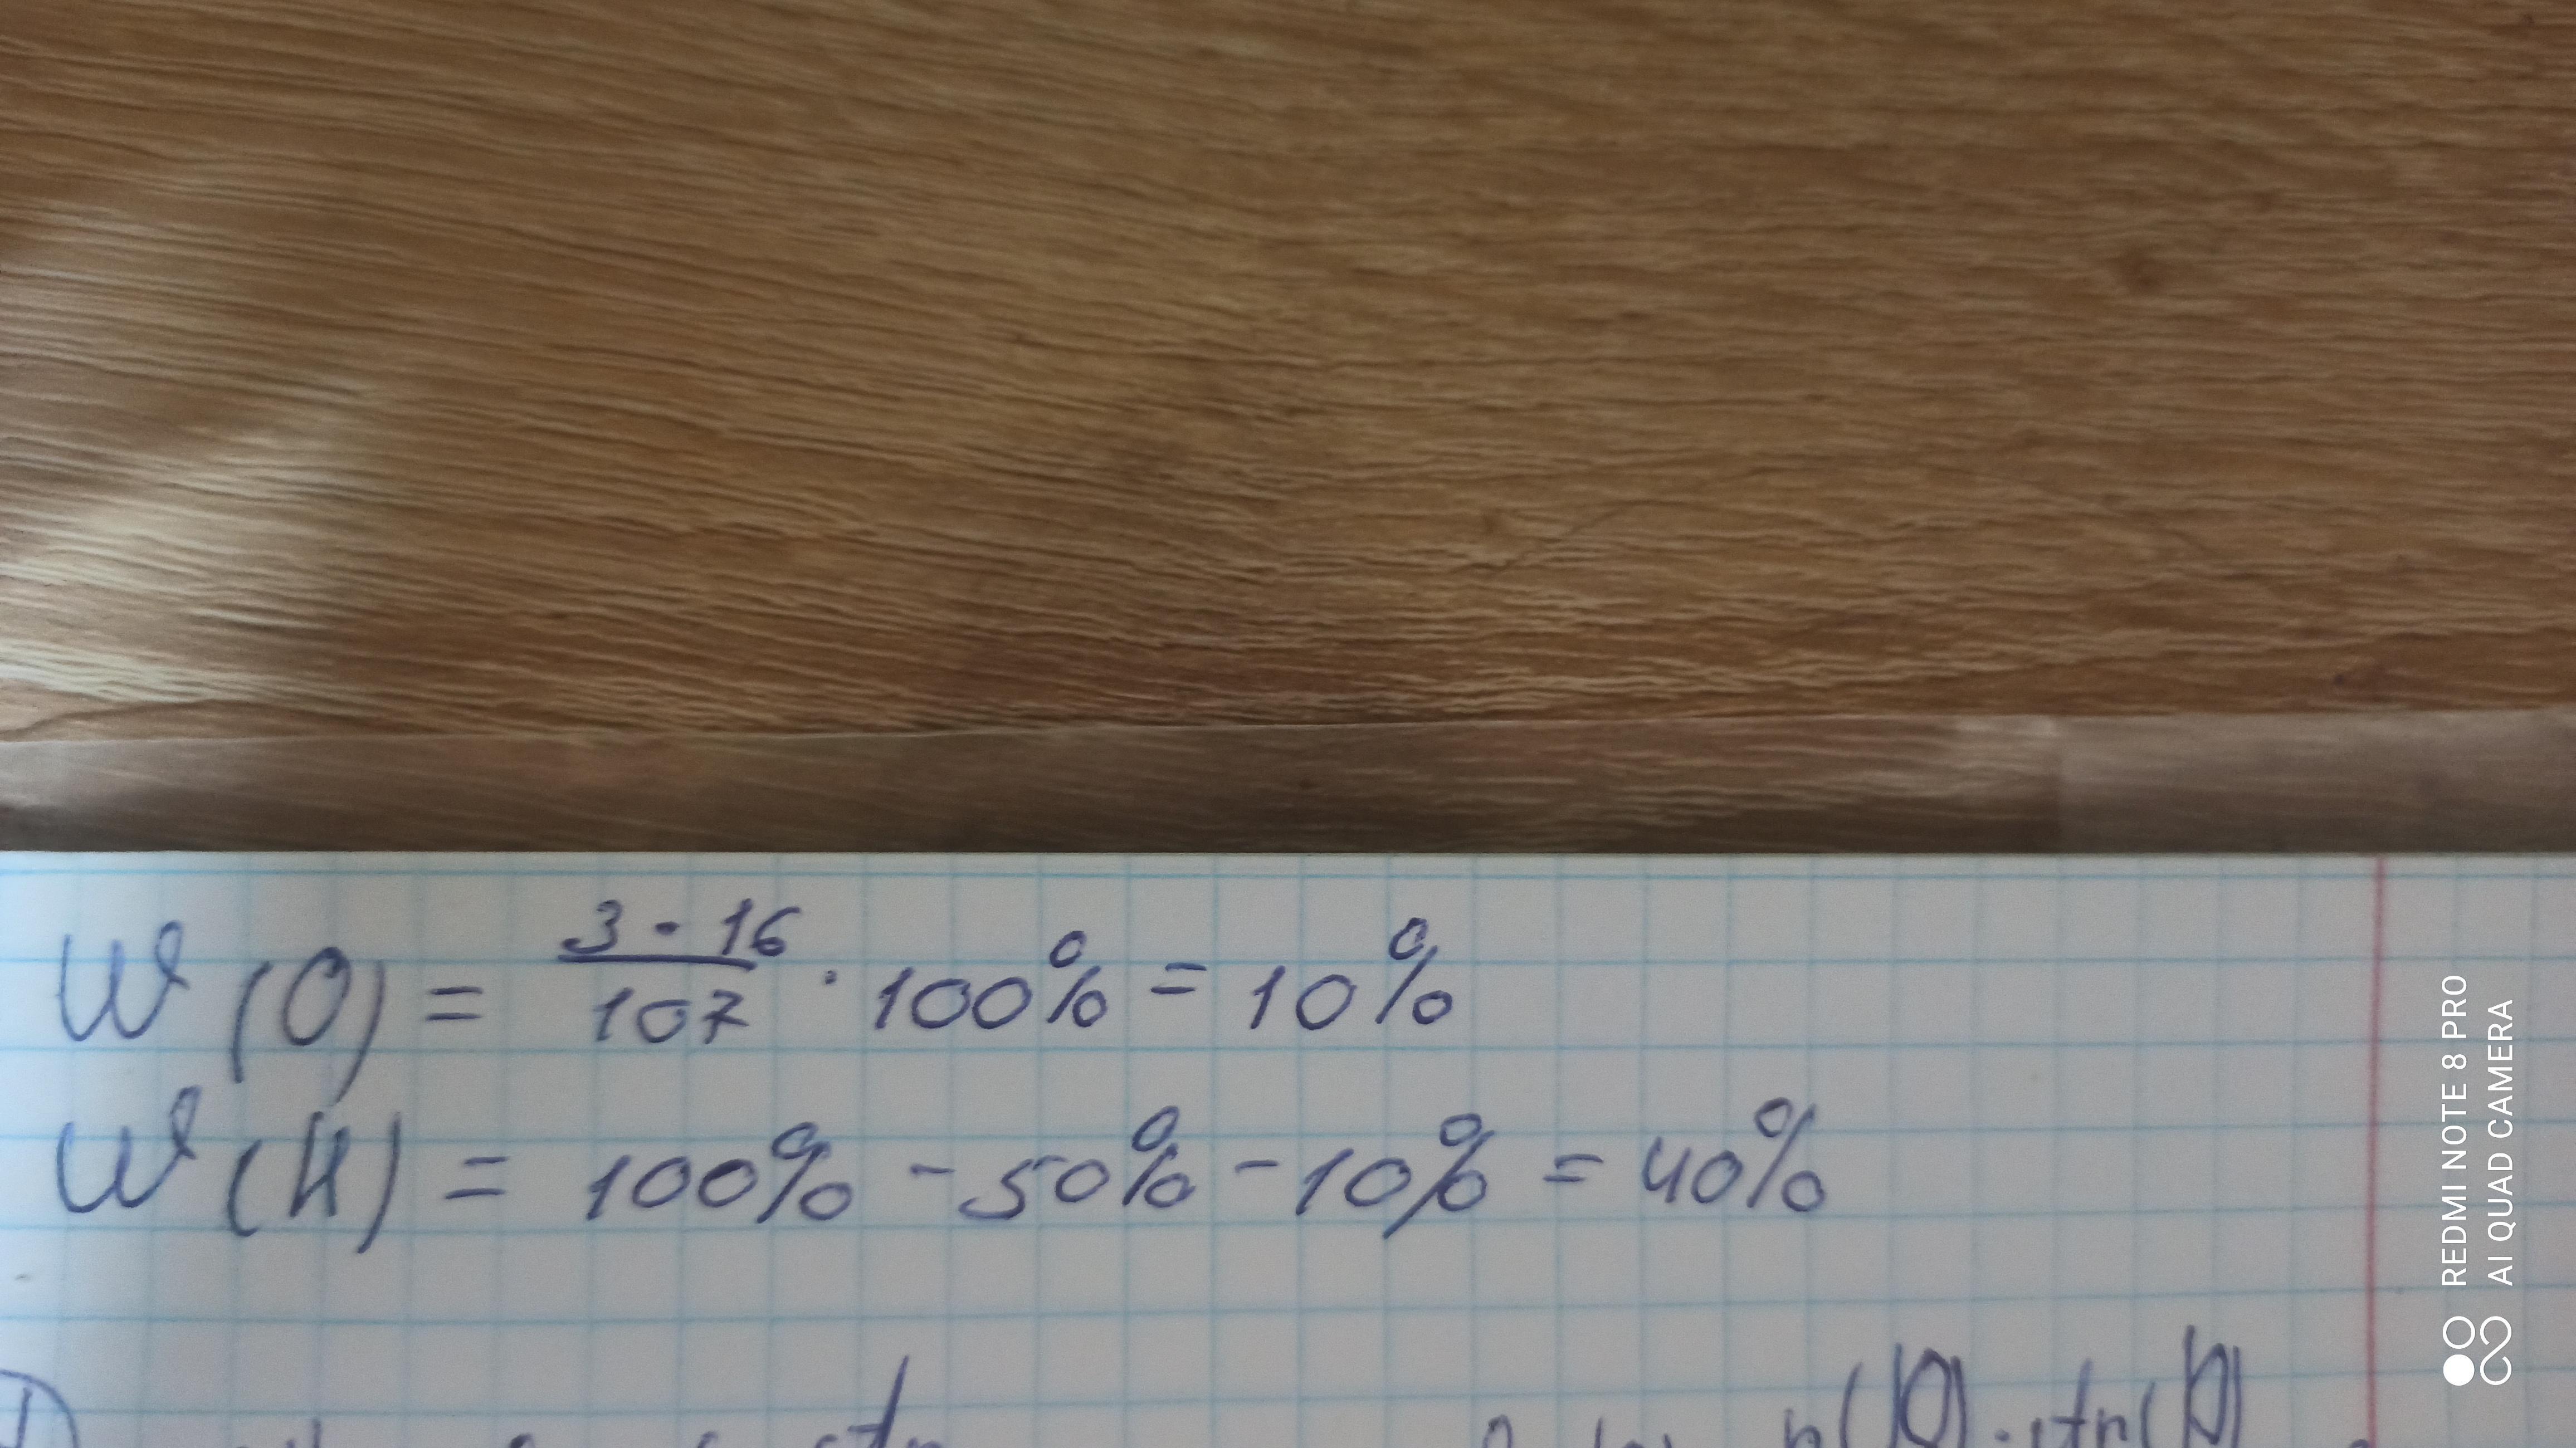 W(O) = 3 · 16 / 107 · 100% = 10%
W(H) = 100% - 50% - 10% = 40%
REDMI NOTE 8 PRO
AI QUAD CAMERA